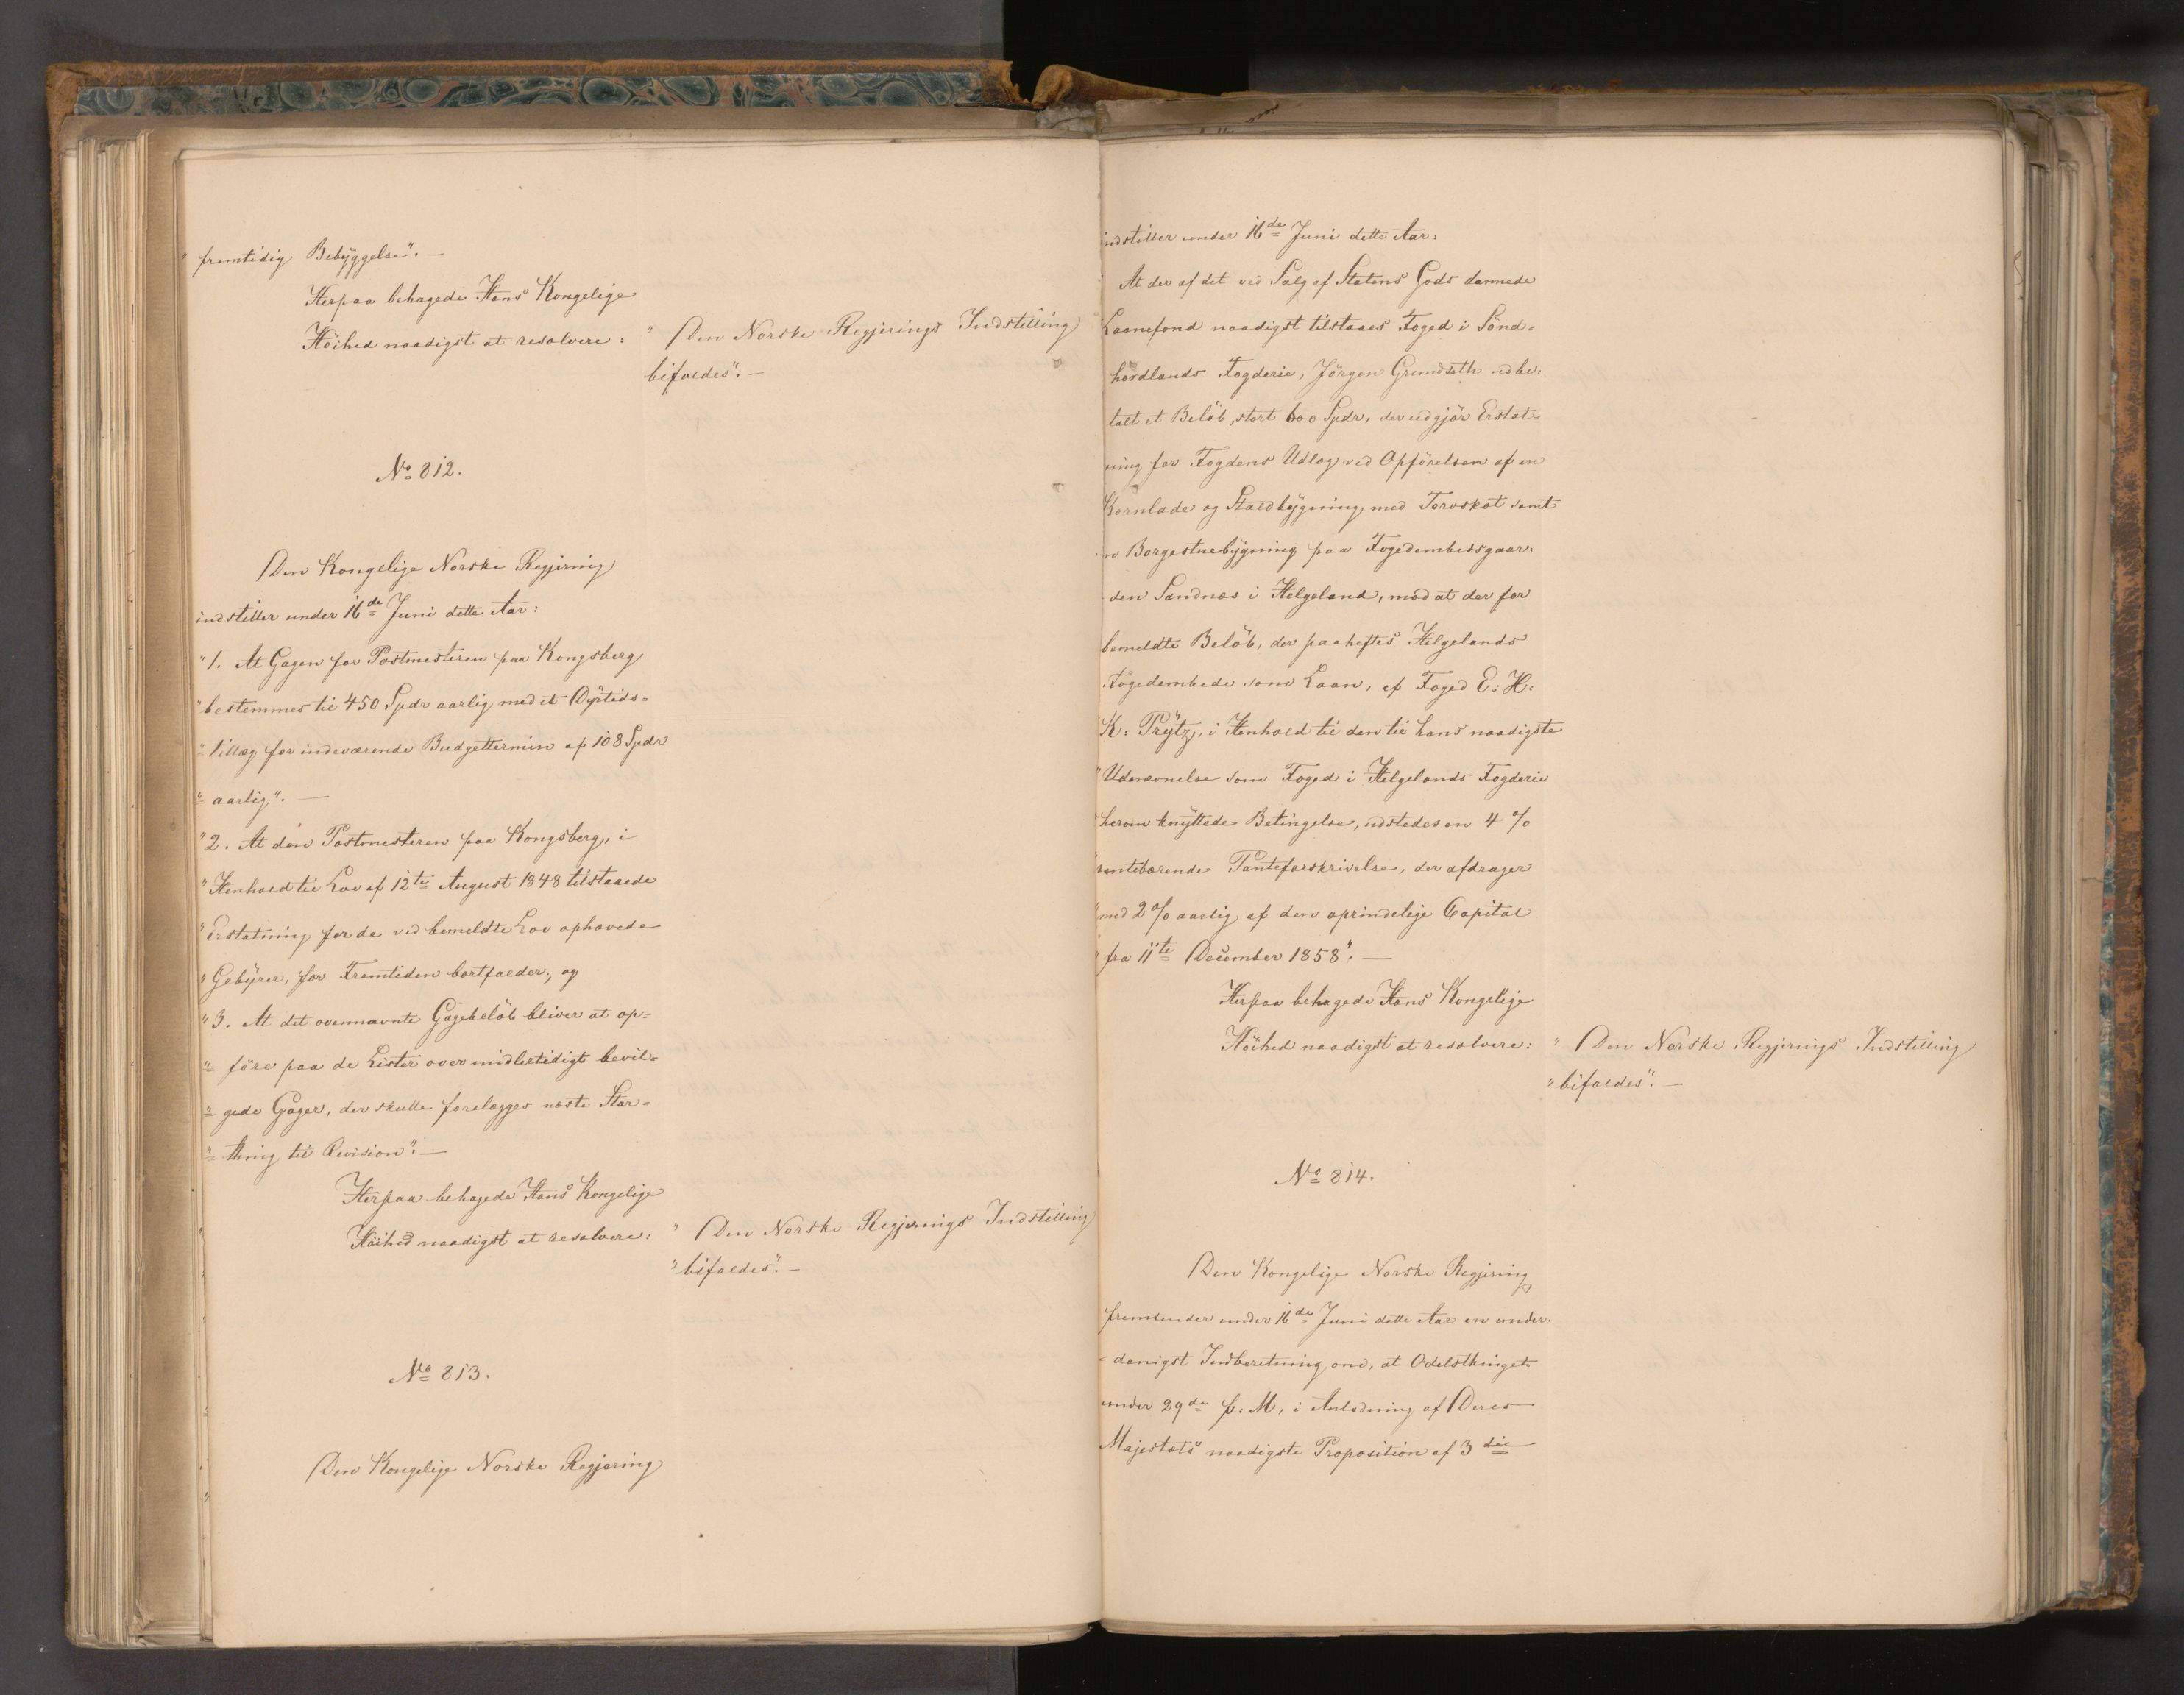 " fremtidig Bebyggelse". —
Herpaa behagede Hans Kongelige
Höihed naadigst at resolvere:
" Den Norske Regjerings Indstilling
bifaldes". —
No 812.
Den Kongelige Norske Regjering
indstiller under 16de Juni dette Aar:
"1. At Gagen for Postmesteren paa Kongsberg
" bestemmes til 450 Spdr aarlig med et Dyrtids-
" tillæg for indeværende Budgettermin af 108 Spdr
" aarlig". —
"2. At den Postmesteren paa Kongsberg, i
" Henhold til Lov af 12te August 1848 tilstaaede
" Erstatning for de ved bemeldte Lov ophævede
" Gebyrer, for Fremtiden bortfalder, og
"3. At det ovennævnte Gagebelöb bliver at op-
" före paa de Lister over midlertidigt bevil-
" gede Gager, der skulle forelægges næste Stor-
" thing til Revision". —
Herpaa behagede Hans Kongelige
Höihed naadigst at resolvere:
" Den Norske Regjerings Indstilling
" bifaldes". —
No 813.
Den Kongelige Norske Regjering
indstiller under 16de Juni dette Aar:
At der af det ved Salg af Statens Gods dannede
Laanefond naadigst tilstaaes Foged i Sönd-
hordlands Fogderie, Jörgen Grundseth udbe-
talt et Belöb, stort 600 Spdr, der udgjör Erstat-
ning for Fogdens Udlæg ved Opförelsen af en
Kornlade og Staldbygning med Torvskot samt
en Borgestuebygning paa Fogedembedsgaar-
den Sandnæs i Helgeland, mod at der for
bemeldte Belöb, der paaheftes Helgelands
Fogedembede som Laan, af Foged E: H:
K: Prytz, i Henhold til den til hans naadigste
" Udnævnelse som Foged i Helgelands Fogderie
" herom knyttede Betingelse, udstedes en 4 %
" rentebærende Panteforskrivelse, der afdrager
" med 2 % aarlig af den oprindelige Capital
" fra 11te December 1858". —
Herpaa behagede Hans Kongelige
Höihed naadigst at resolvere:
" Den Norske Regjerings Indstilling
" bifaldes". —
No 814.
Den Kongelige Norske Regjering
fremsender under 16de Juni dette Aar en under-
- danigst Indberetning om, at Odelsthinget
under 29de f: M, i Anledning af Deres
Majestæts naadigste Proposition af 3die